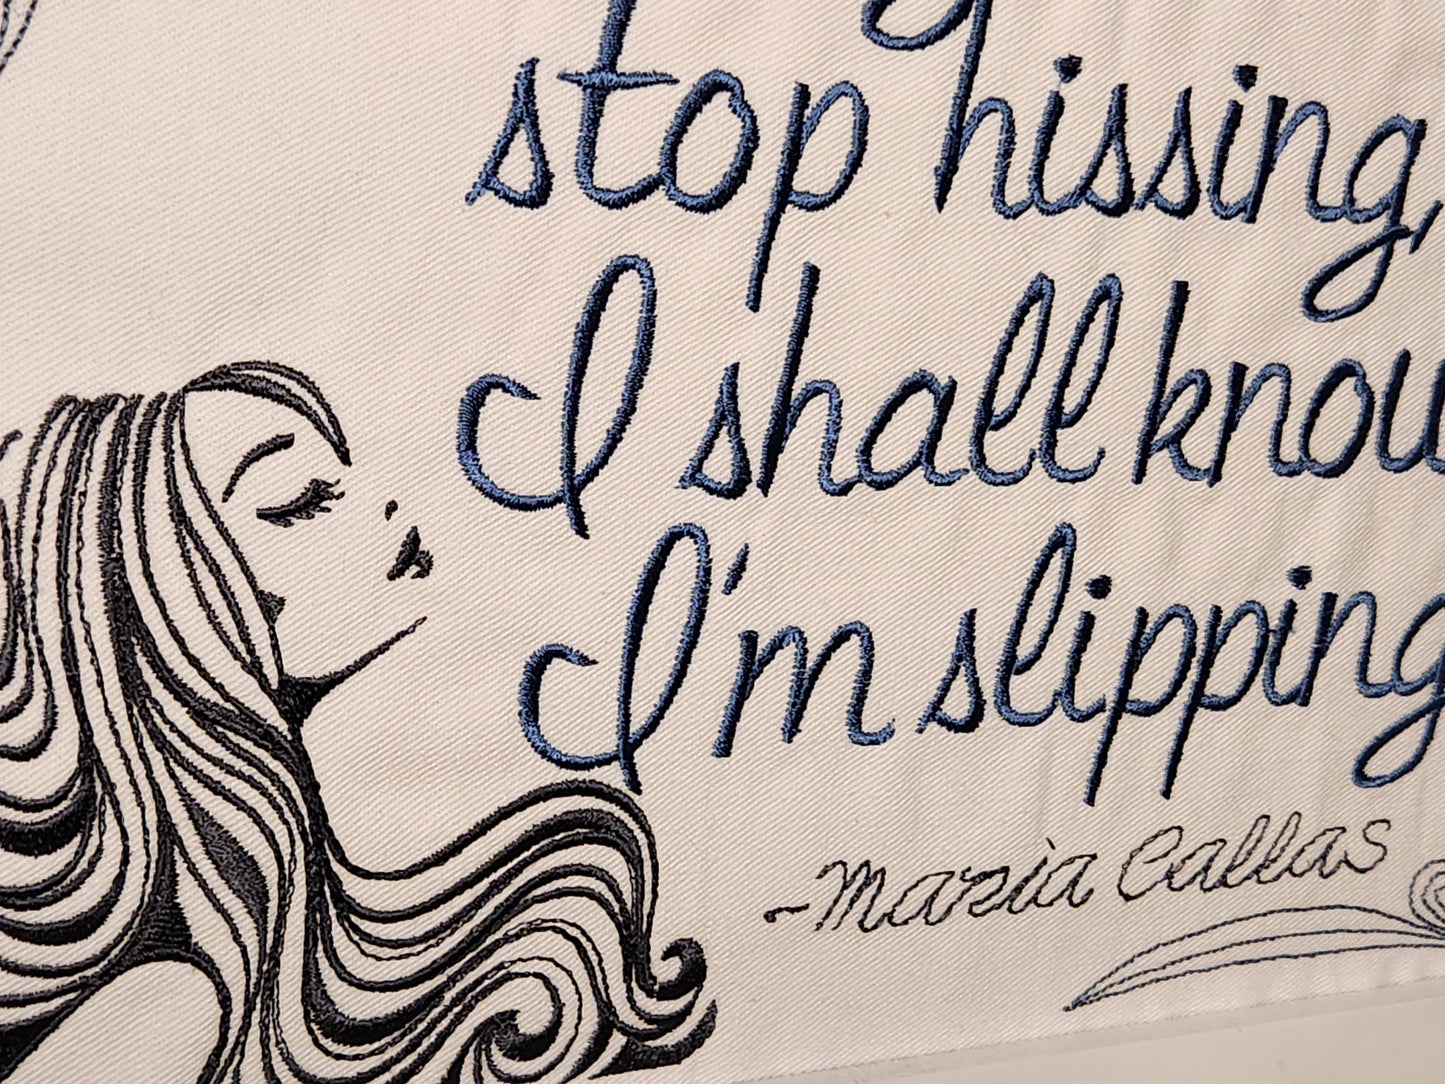 stop hissing,
I shall know
I'm slipping
-Maria Callas